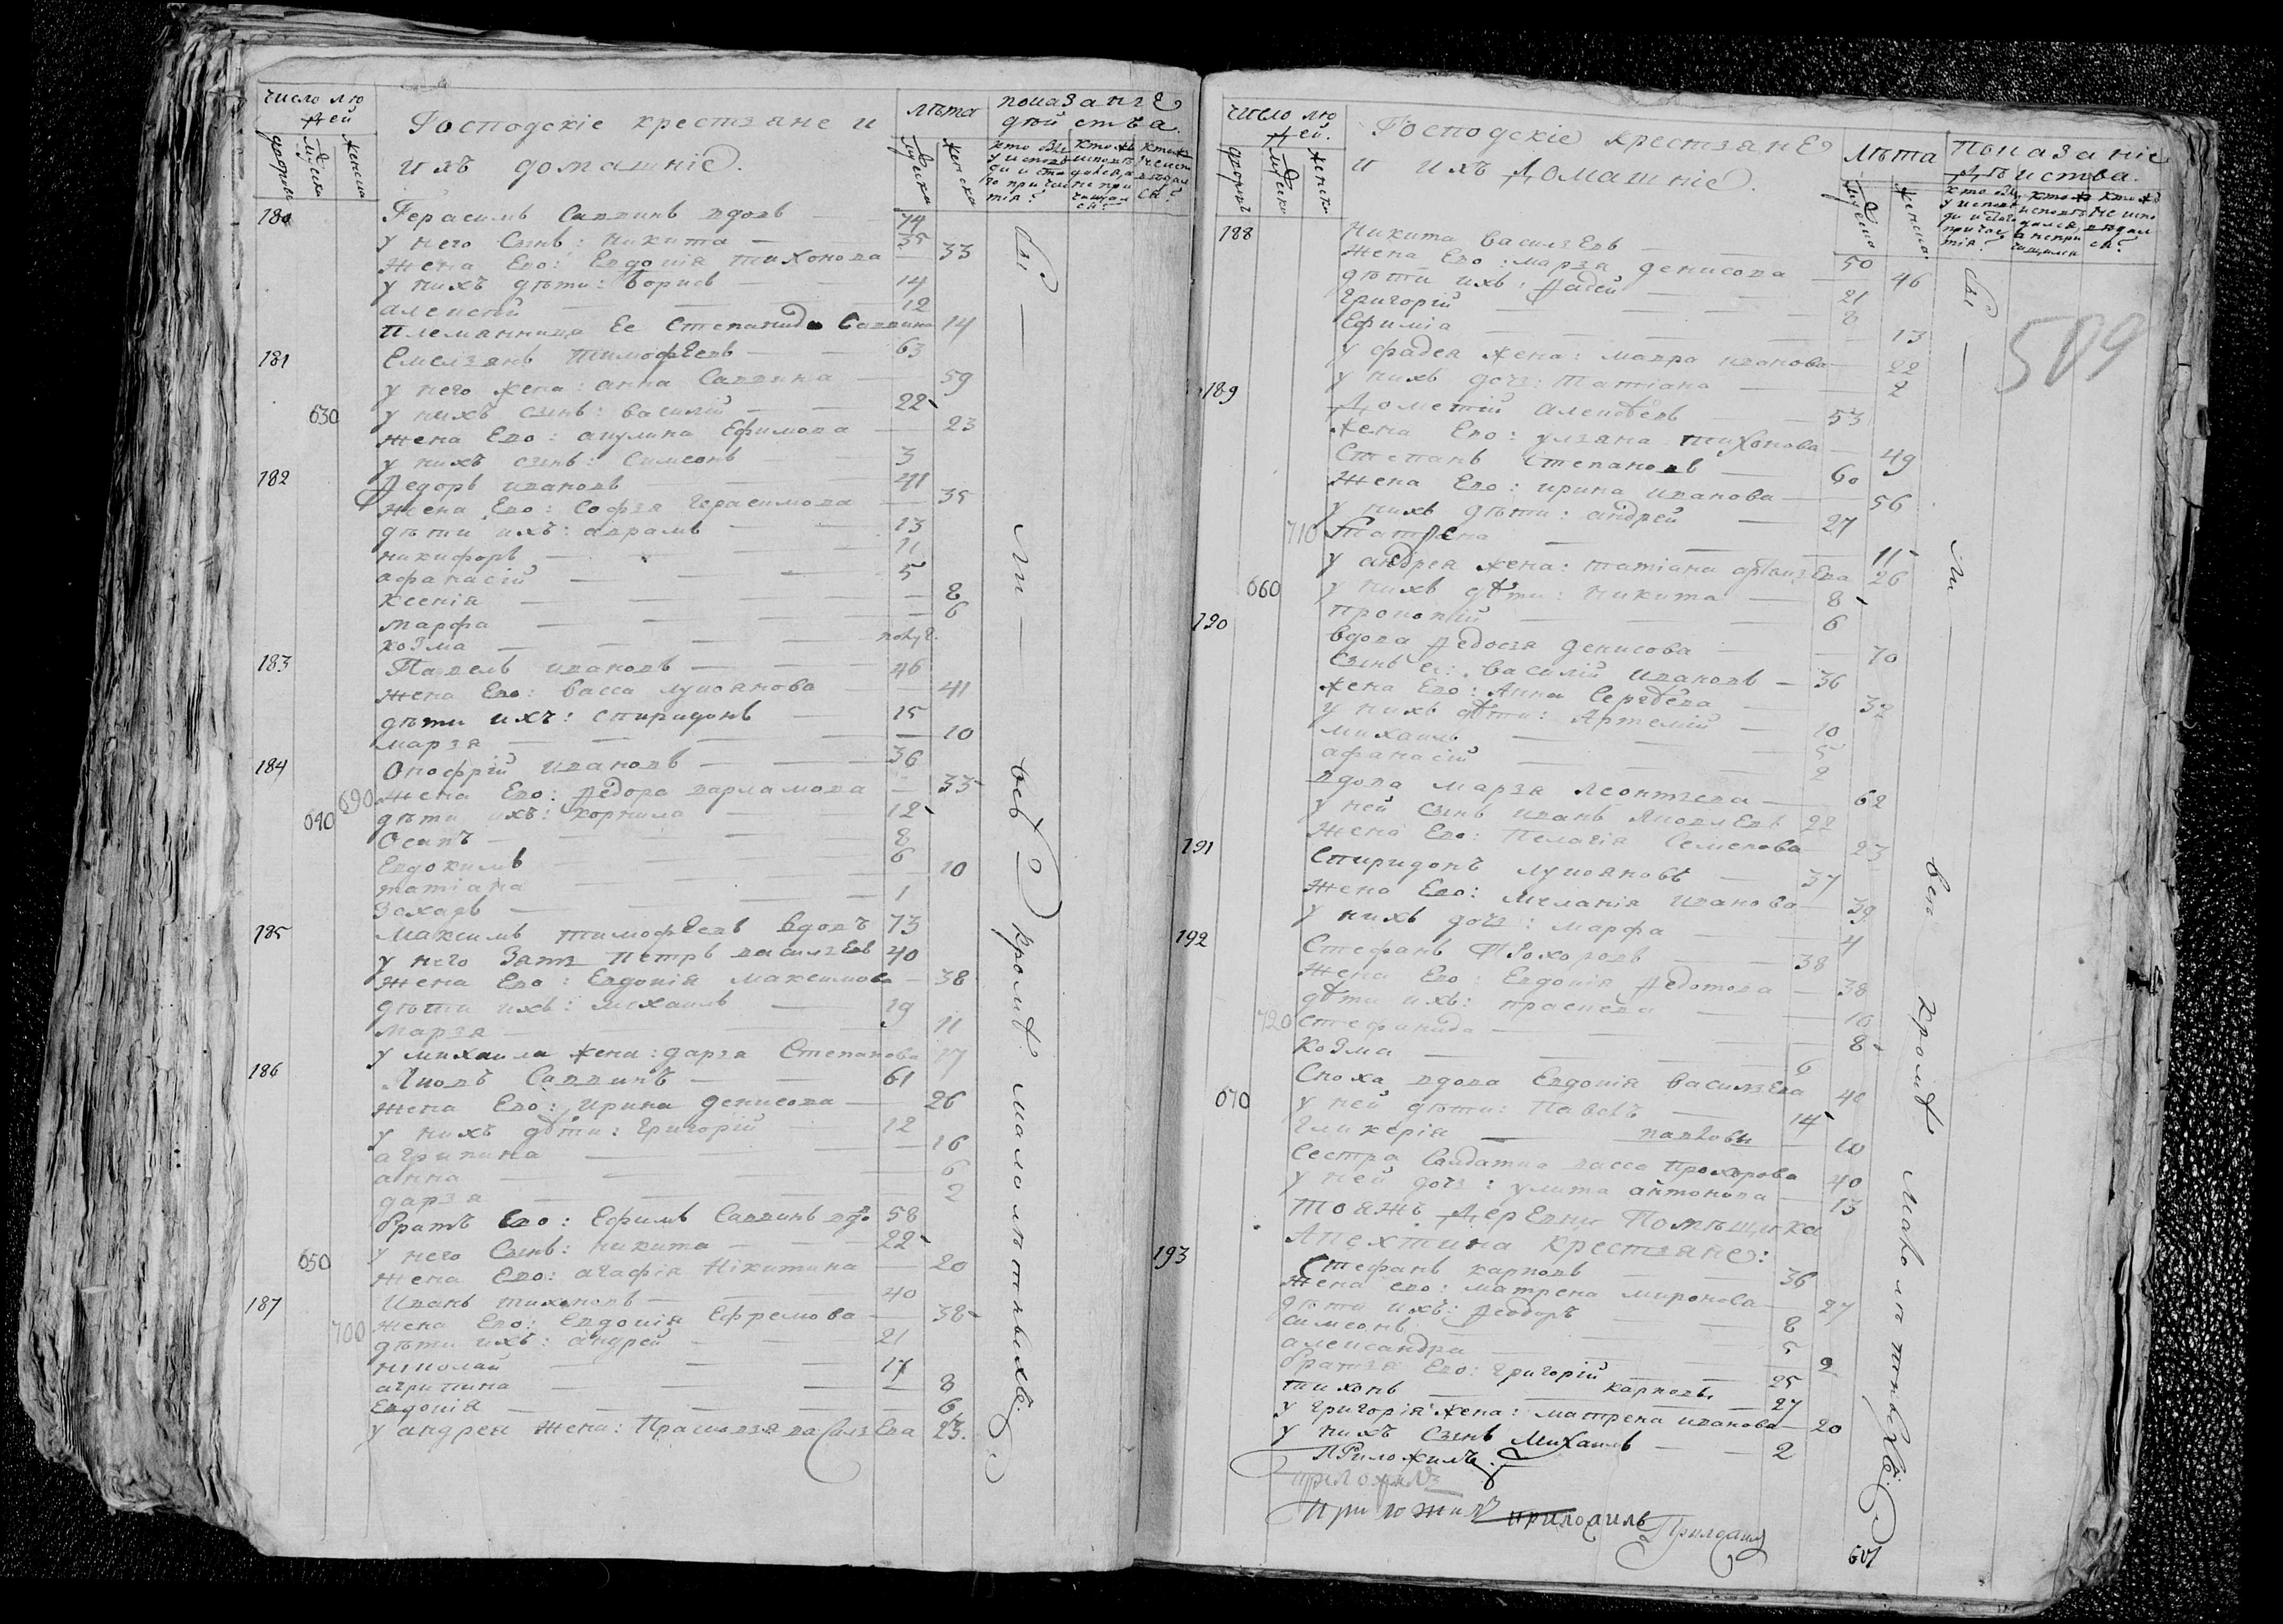 число лю
дей
дворовъ
мужска
женска
Господскіе крестьяне и
ихъ домашніе.
лѣта
мужска
женска
показаніе
дѣйства.
180 Герасимъ Саввинъ вдовъ — 74
у него Сынъ: никита — 35
жена Ево: Евдокія тихонова — 33
у нихъ дѣти: борисъ — 14
алексѣй — 12
племянница Ее Степанида Саввина 14
181 Емельянъ тимофѣевъ — 63
у него жена: анна Саввина — 59
630 у нихъ сынъ: василій — 22
жена Ево: акулина Ефимова — 23
у нихъ сынъ: Симеонъ — 3
182 Федоръ ивановъ — 41
жена Ево: Софья герасимова — 35
дѣти ихъ: аврамъ — 13
никифоръ — 11
афанасій — 5
ксенія — 8
марфа — 6
козма — полуг.
183 Павелъ ивановъ — 46
жена Ево: васса лукоянова — 41
дѣти ихъ: спиридонъ — 15
марья — 10
184 Онофрій ивановъ — 36
690 жена Ево: Федора варламова — 33
640 дѣти ихъ: корнила — 12
Осипъ — 8
Евдокимъ — 6
татіана — 10
Захаръ — 1
185 Максимъ тимофѣевъ вдовъ 73
у него Зять петръ васильЕвъ 40
жена Ево: Евдокія максимова — 38
дѣти ихъ: михаилъ — 19
марья — 11
у михаила жена: дарья Степанова 17
186 Яковъ Саввинъ — 61
жена Ево: Ирина денисова — 26
у нихъ дѣти: григорій — 12
агрипина — 16
анна — 6
дарья — 2
братъ Ево: Ефимъ Саввинъ вдо 58
650 у него Сынъ: никита — 22
жена Ево: агафія Никитина — 20
187 Иванъ тихоновъ — 40
700 жена Ево: Евдокія Ефремова — 38
дѣти ихъ: андрей — 21
николай — 17
агрипина — 8
Евдокія — 6
у андрея жена: Прасковья васильЕва 23.
бы — ли — всѣ кромѣ малолѣтныхъ
число лю
дей.
дворовъ
мужска
женска
Господскіе крестьянЕ
и ихъ Домашніе.
лѣта
мужска
женска
показаніе
дѣйства.
509
188 Никита васильЕвъ — 50
жена Ево: марья денисова — 46
дѣти ихъ: Фадей — 21
григорій — 8
Ефимія — 13
у фадея жена: мавра иванова — 22
у нихъ дочь: татіана — 2
189 Дометій алексѣевъ — 53
жена Ево: ульяна тихонова — 49
Степанъ Степановъ — 60
жена Ево: ирина иванова — 56
у нихъ дѣти: андрей — 27
710 татіяна — 11
у андрея жена: татіана 26
660 у нихъ дѣти: никита — 8
прокопій — 6
190 вдова Федосья денисова — 70
сынъ ее: василій ивановъ — 36
жена Ево: Анна Сергѣева — 32
у нихъ дѣти: Артемій — 10
михаилъ — 5
афанасій — 2
вдова марья леонтьева — 62
у ней сынъ иванъ ЯковлЕвъ 22
жена Ево: Пелагія Семенова 23
191 Спиридонъ лукояновъ — 37
жена Ево: Меланія иванова — 39
у нихъ дочь: марфа — 4
192 Стефанъ ПРохоровъ — 38
жена Ево: Евдокія Федотова — 38
дѣти ихъ: прасковья — 10
720 стефанида — 8
козма — 6
Сноха вдова Евдокія васильЕва 40
670 у ней дѣти: Павелъ — 14
гликерія — павловы — 10
Сестра Салдатка васса Прохорова 40
у ней дочь: улита антонова — 13
тояжъ ДерЕвни Помѣщика
Апехтина крестьяне:
193 Стефанъ карповъ — 36
жена ево: матрена миронова — 27
дѣти ихъ: Феодоръ — 8
симеонъ — 5
александра — 2
братья Ево: григорій — 25
тихонъ — карповы — 27
у григорія жена: матрена иванова — 20
у нихъ Сынъ Михаилъ — 2
ПРиложилъ
приложилъ
приложилъ
бы — ли — вси кромѣ малолѣтныхъ